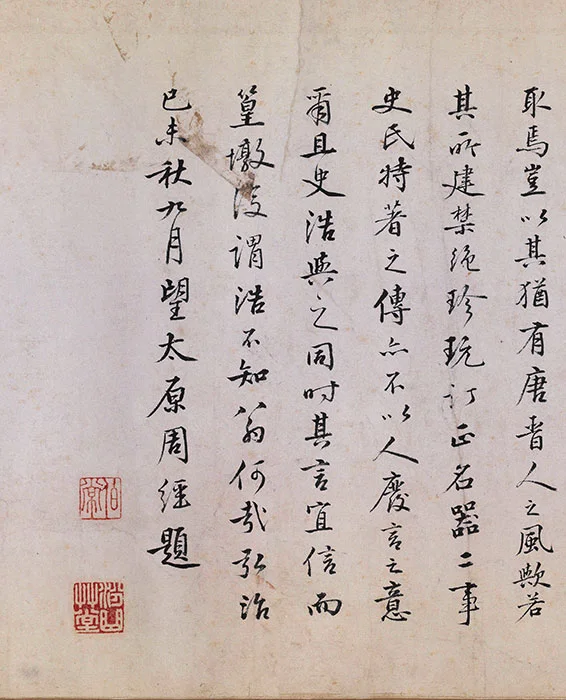 取焉豈以其猶有唐晋人之風歟若
其所建禁絶珍玩訂正名器二事
史氏特著之傳亦不以人廢言之意
爾且史浩與之同时其言宜信而
篁墩復謂浩不知翁何哉弘治
己未秋九月望太原周經題
伯常